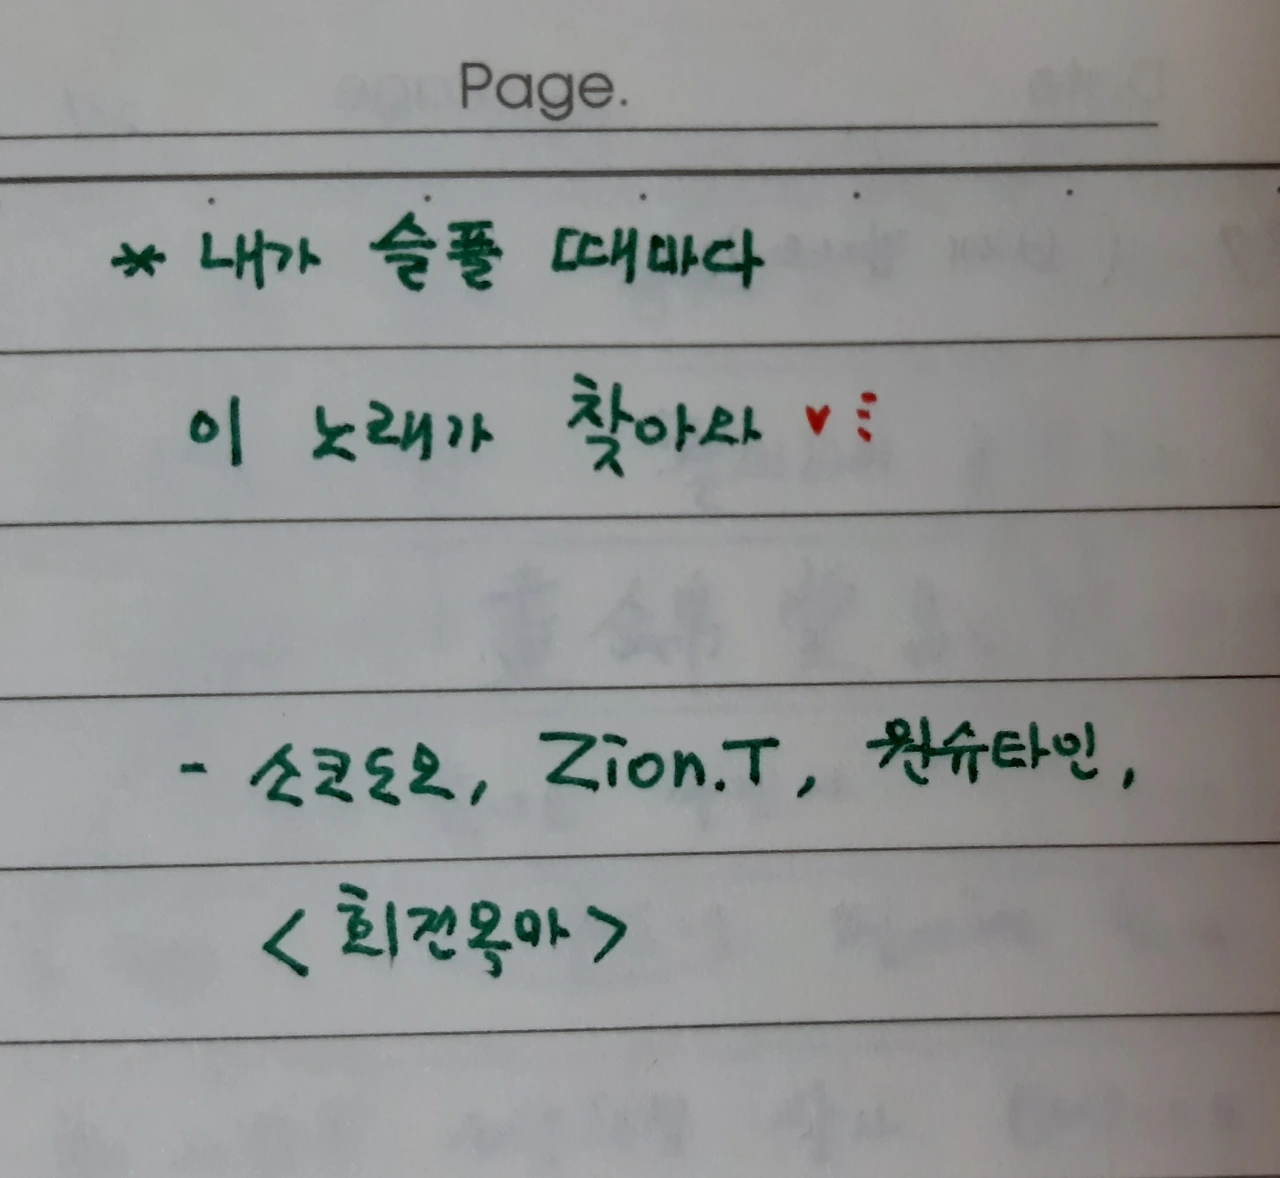 Page.
* 내가 슬플 때마다
이 노래가 찾아와 ♥
- 소코도모, Zion.T, 원슈타인,
<회전목마>